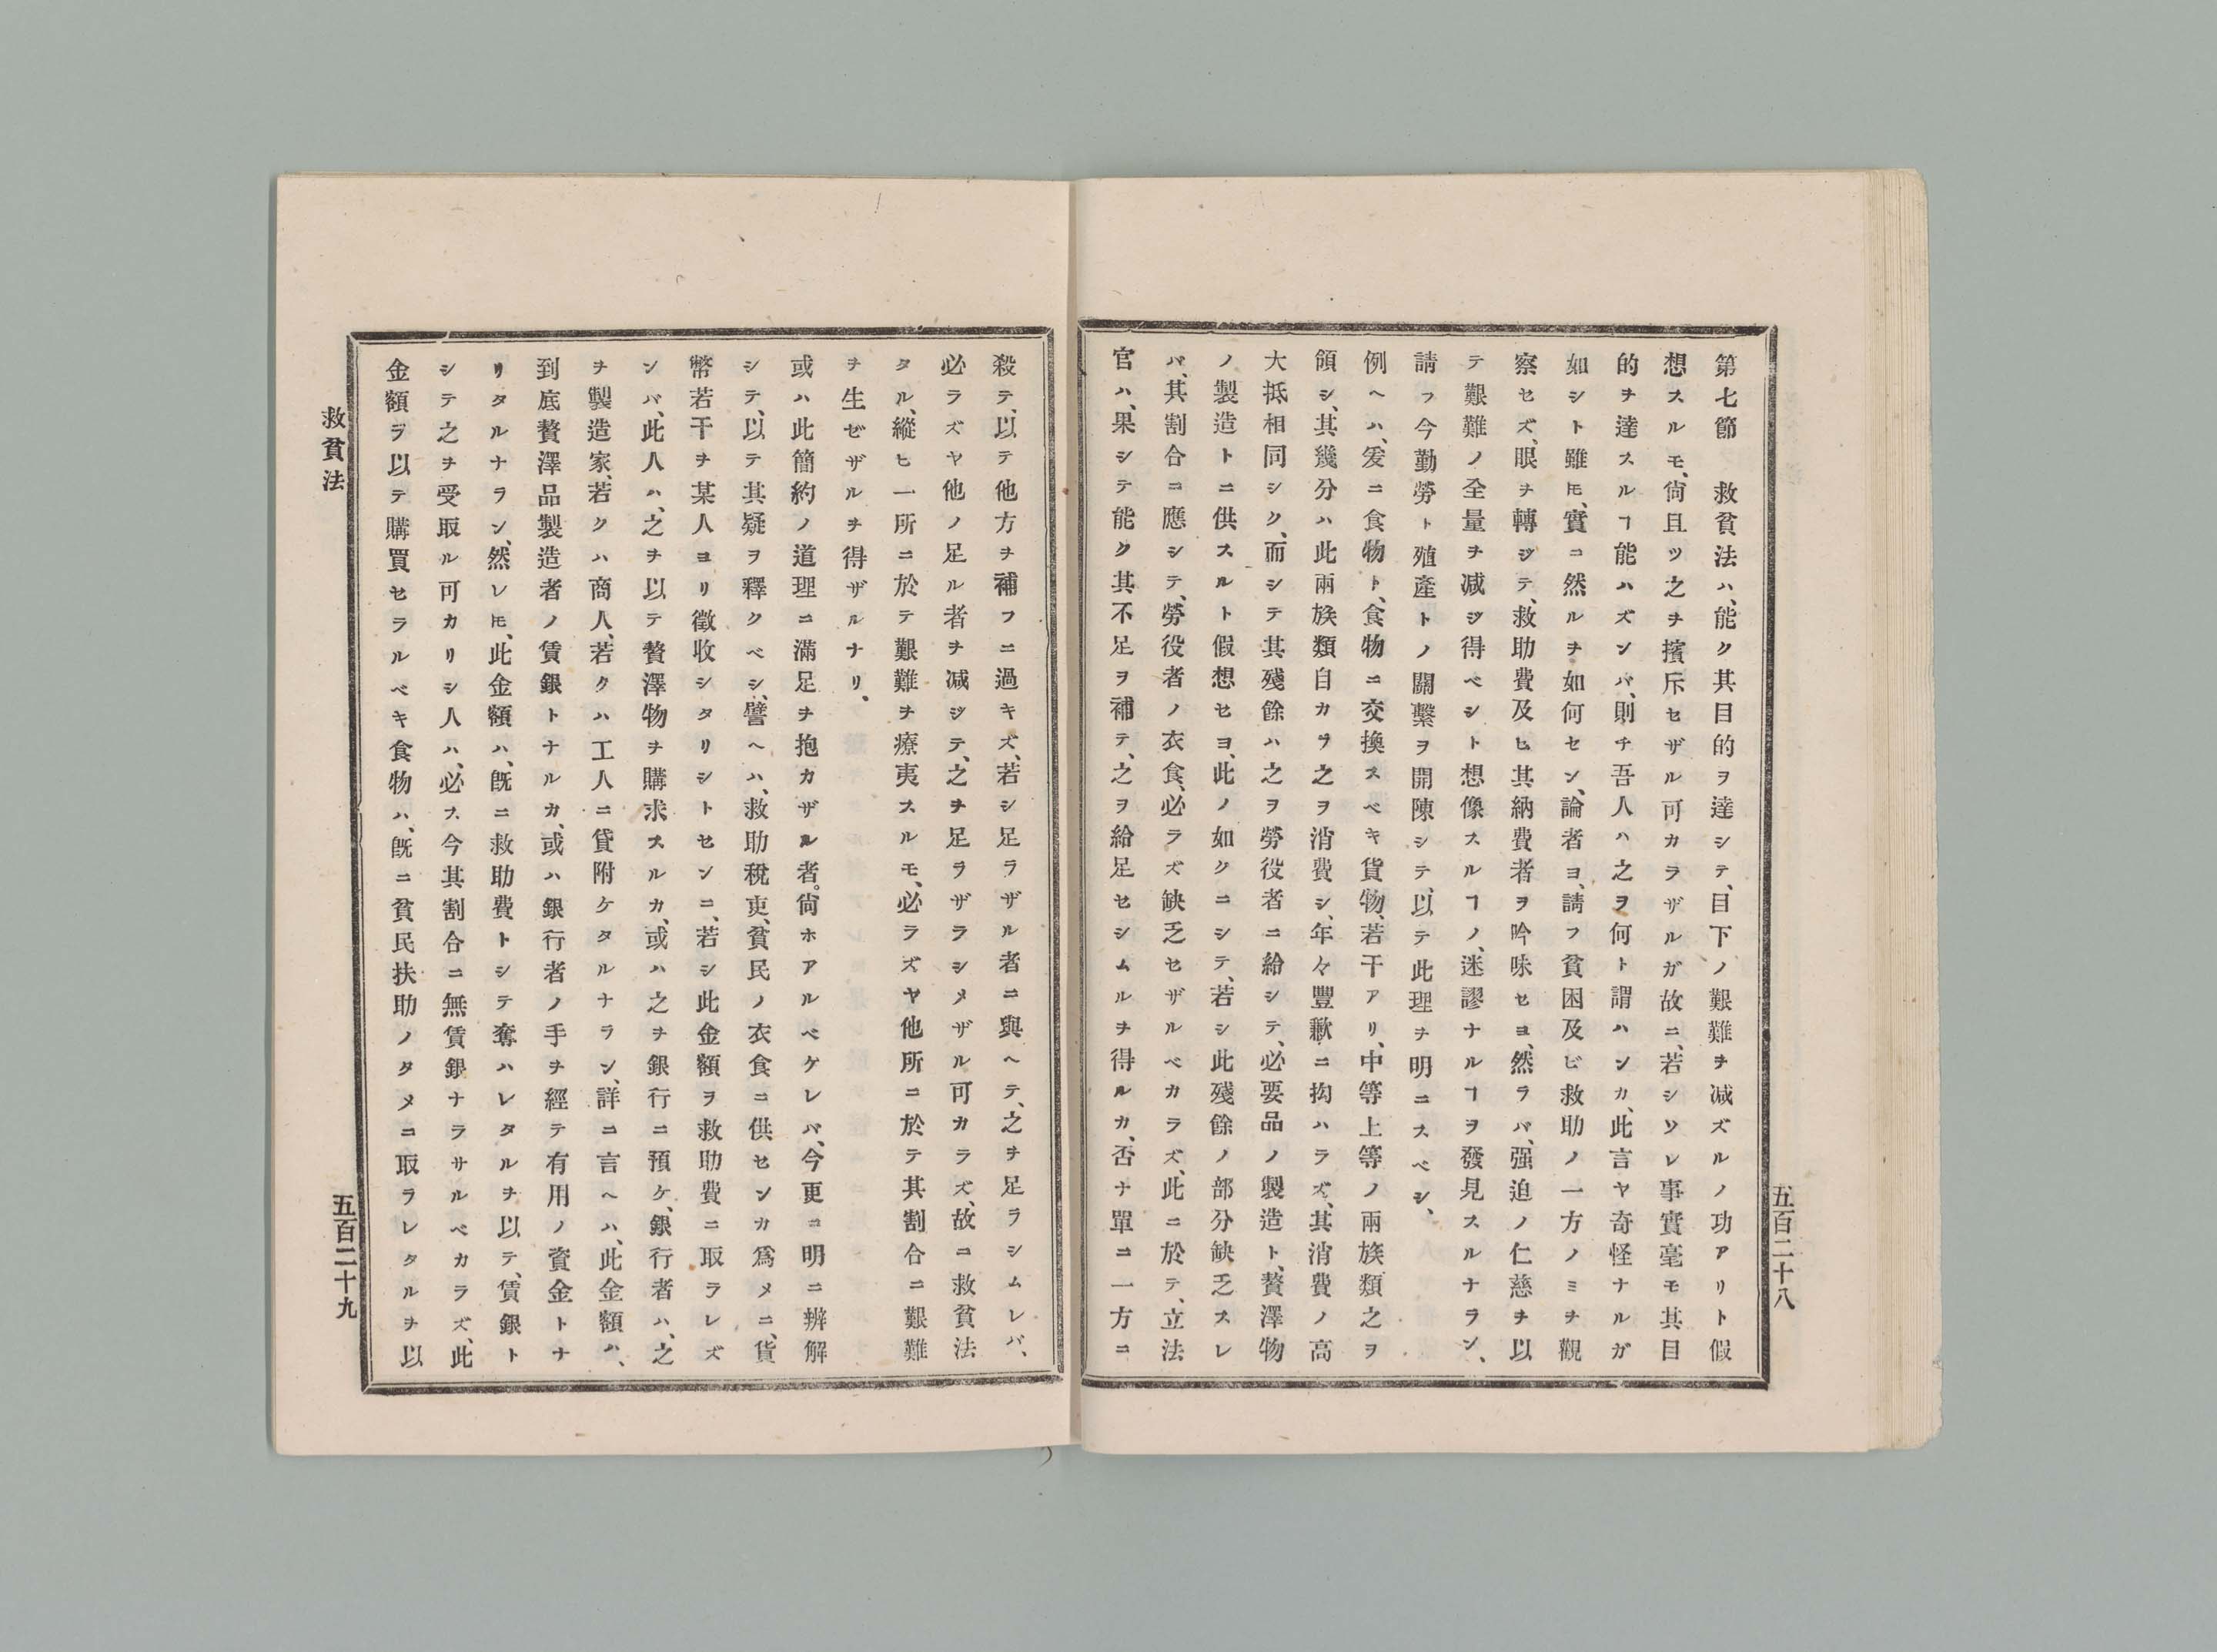 五百二十八
第七節　救貧法ハ、能ク其目的ヲ達シテ、目下ノ艱難ヲ減ズルノ功アリト假
想スルモ、尙且ツ之ヲ擯斥セザル可カラザルガ故ニ、若シソレ事實毫モ其目
的ヲ達スルヿ能ハズンバ、則チ吾人ハ之ヲ何ト謂ハンカ、此言ヤ奇怪ナルガ
如シト雖𪜈、實ニ然ルヲ如何セン、論者ヨ、請フ貧困及ビ救助ノ一方ノミヲ觀
察セズ、眼ヲ轉ジテ、救助費及ヒ其納費者ヲ吟味セヨ、然ラバ、强迫ノ仁慈ヲ以
テ艱難ノ全量ヲ減ジ得ベシト想像スルヿノ、迷謬ナルヿヲ發見スルナラン、
請フ今勤勞ト殖產トノ關繫ヲ開陳シテ、以テ此理ヲ明ニスベシ、
例ヘハ、爰ニ食物ト、食物ニ交換スベキ貨物、若干アリ、中等上等ノ兩族類之ヲ
領シ、其幾分ハ此兩族類自カラ之ヲ消費シ、年々豐歉ニ拘ハラズ、其消費ノ高
大抵相同シク、而シテ其殘餘ハ之ヲ勞役者ニ給シテ、必要品ノ製造ト、贅澤物
ノ製造トニ供スルト假想セヨ、此ノ如クニシテ、若シ此殘餘ノ部分缺乏スレ
バ、其割合ニ應シテ、勞役者ノ衣食、必ラズ缺乏セザルベカラズ、此ニ於テ、立法
官ハ、果シテ能ク其不足ヲ補テ、之ヲ給足セシムルヲ得ルカ、否ナ單ニ一方ニ
殺テ、以テ他方ヲ補フニ過キズ、若シ足ラザル者ニ與ヘテ、之ヲ足ラシムレバ、
必ラズヤ他ノ足ル者ヲ減ジテ、之ヲ足ラザラシメザル可カラズ、故ニ救貧法
タル、縱ヒ一所ニ於テ艱難ヲ療夷スルモ、必ラズヤ他所ニ於テ其割合ニ艱難
ヲ生ゼザルヲ得ザルナリ、
或ハ此簡約ノ道理ニ滿足ヲ抱カザル者。尙ホアルベケレバ、今更ニ明ニ辨解
シテ、以テ其疑ヲ釋クベシ、譬ヘハ、救助稅吏、貧民ノ衣食ニ供センカ爲メニ、貨
幣若干ヲ某人ヨリ徵收シタリシトセンニ、若シ此金額ヲ救助費ニ取ラレズ
ンバ、此人ハ、之ヲ以テ贅澤物ヲ購求スルカ、或ハ之ヲ銀行ニ預ケ、銀行者ハ、之
ヲ製造家、若クハ商人、若クハ工人ニ貸附ケタルナラン、詳ニ言ヘハ、此金額ハ、
到底贅澤品製造者ノ賃銀トナルカ、或ハ銀行者ノ手ヲ經テ有用ノ資金トナ
リタルナラン、然レ𪜈、此金額ハ、旣ニ救助費トシテ奪ハレタルヲ以テ、賃銀ト
シテ之ヲ受取ル可カリシ人ハ、必ス今其割合ニ無賃銀ナラサルベカラズ、此
金額ヲ以テ購買セラルベキ食物ハ、旣ニ貧民扶助ノタメニ取ラレタルヲ以
救貧法
五百二十九